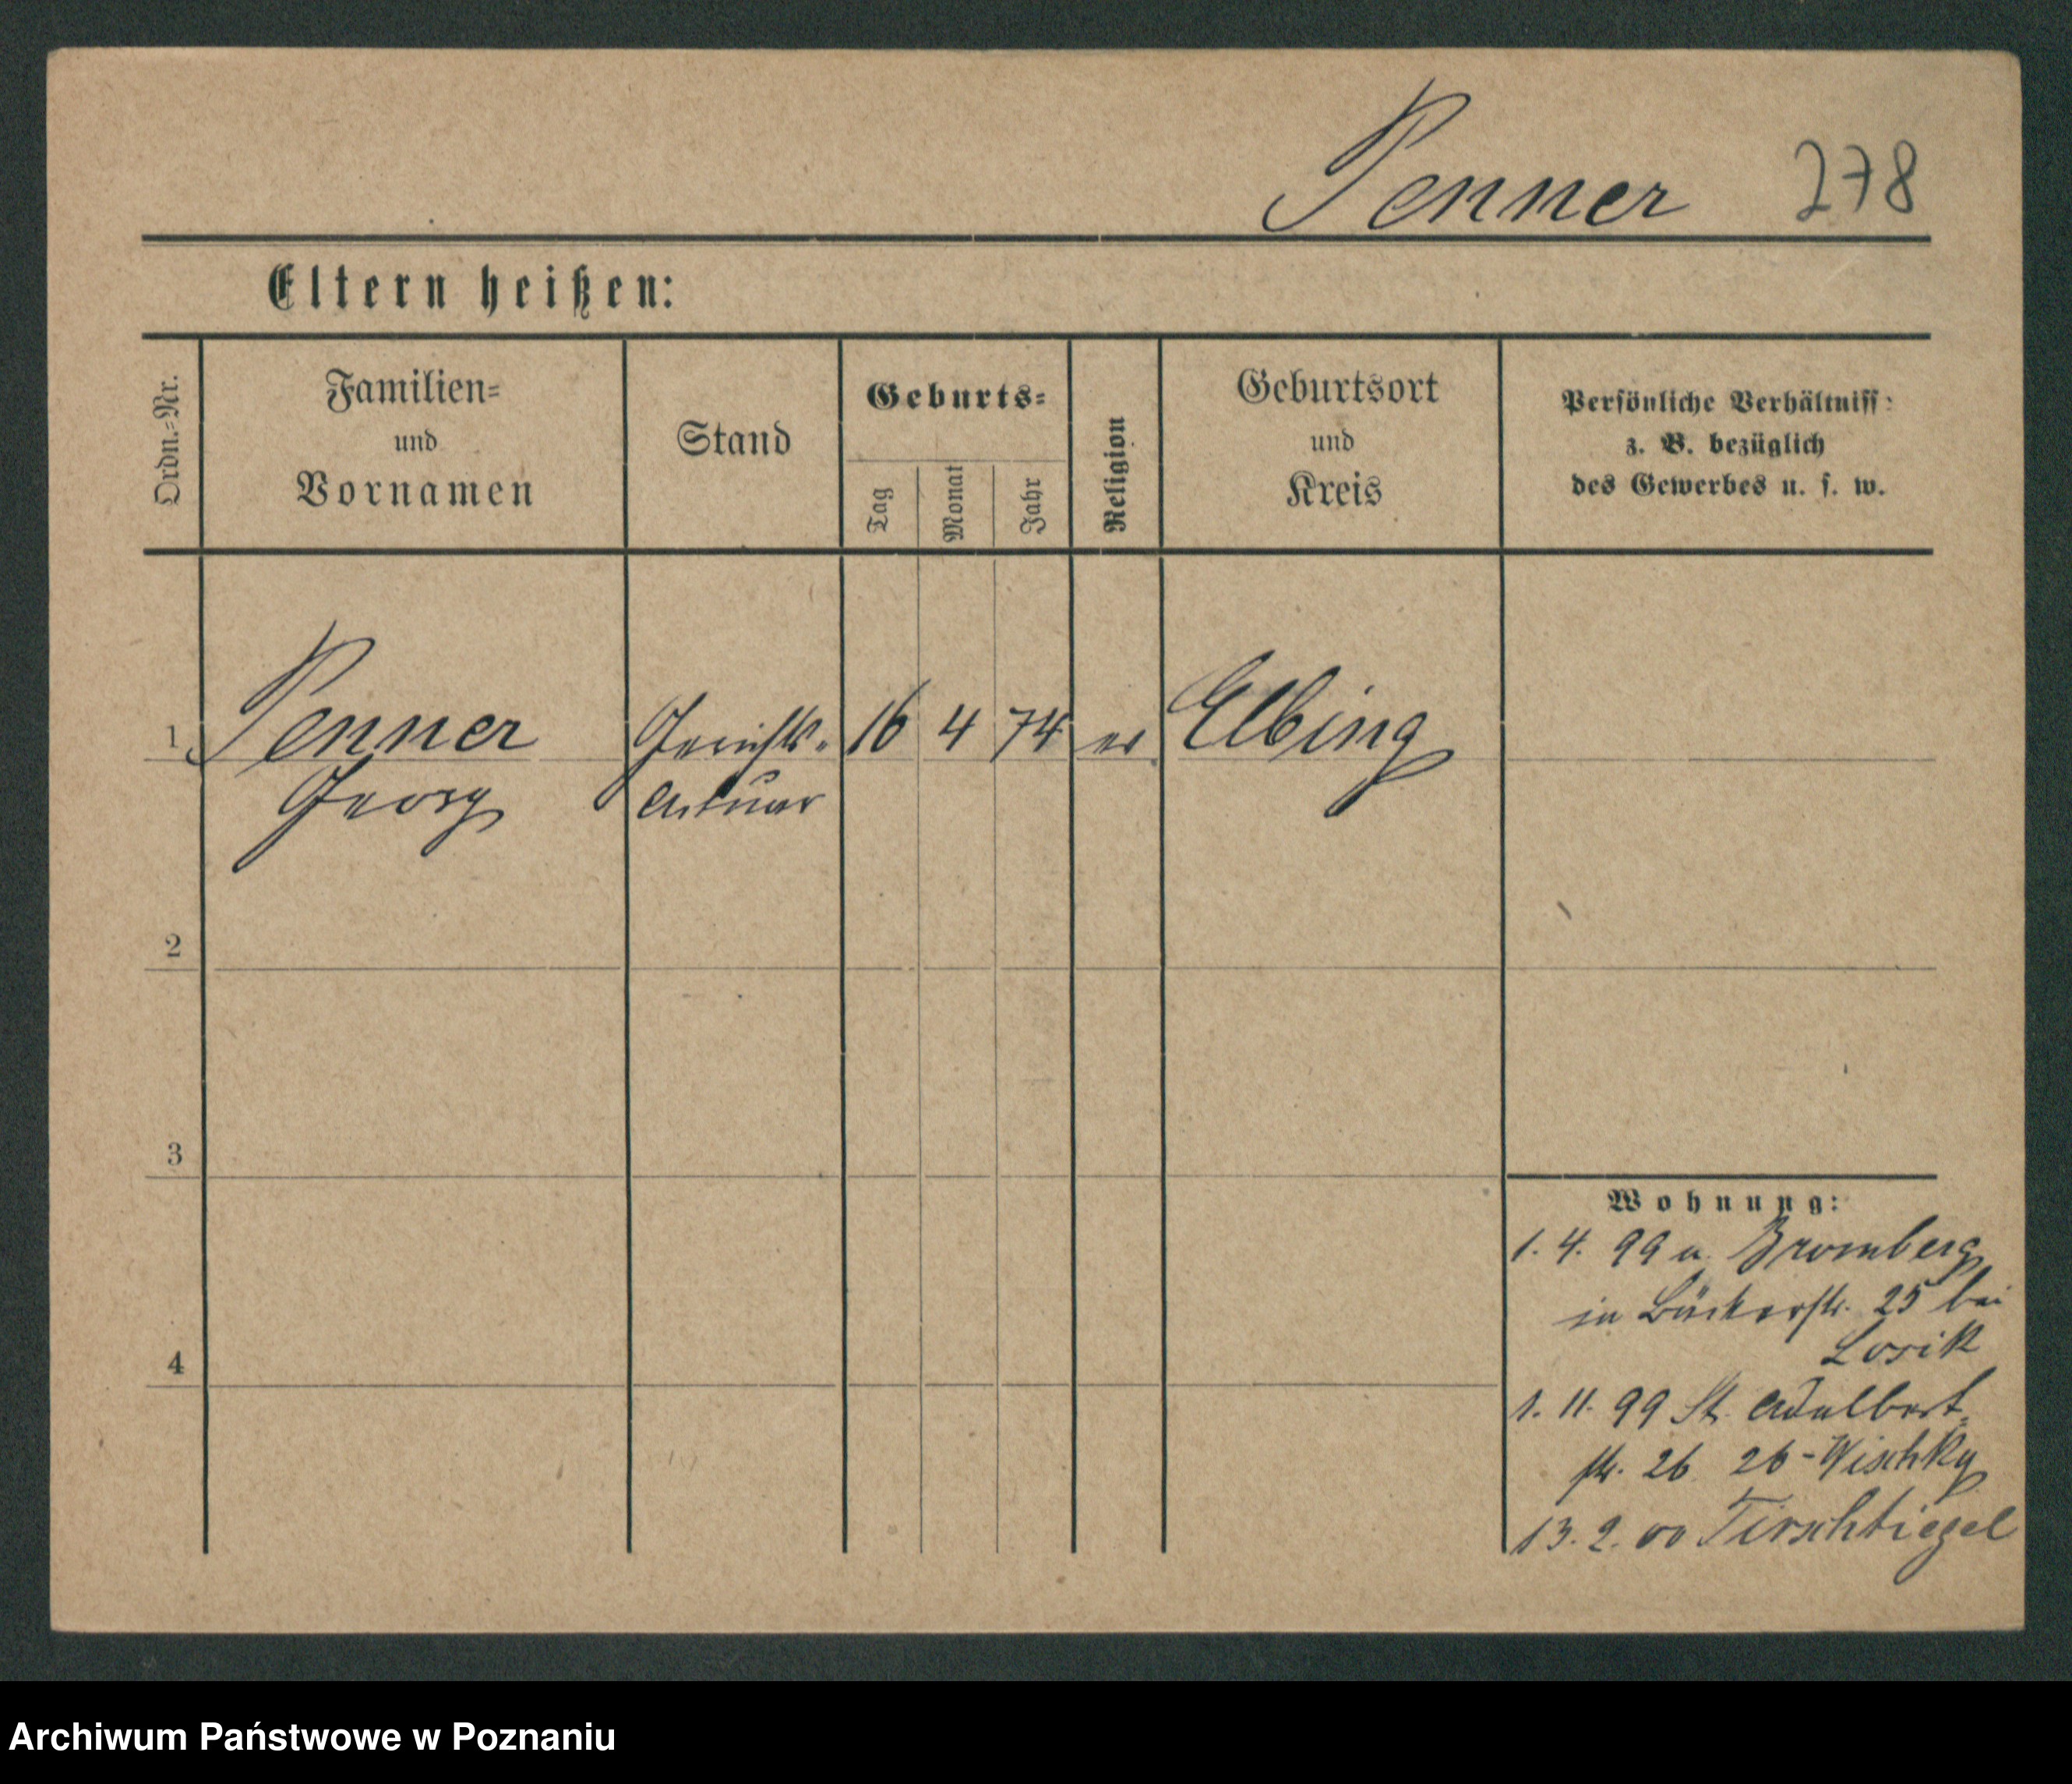 Penner 278
Eltern heißen:
Ordn.-Nr.
Familien-
und
Vornamen
Stand
Geburts-
Tag
Monat
Jahr
Religion
Geburtsort
und
Kreis
Persönliche Verhältniss:
z. B. bezüglich
des Gewerbes u. s. w.
1 Penner Gerichts- 16 4 74 ev Elbing
Georg Actuar
2
3
4
Wohnung:
1. 4. 99 a. Bromberg
in Bäckerstr. 25 bei
Losik
1. 11. 99 St. Adalbert
str. 26 26-Wischky
13. 2. 00 Tirschtiegel
Archiwum Państwowe w Poznaniu